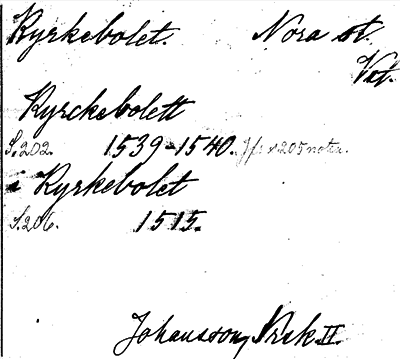 Kyrkebolet. Nora st.
Vst.
Kyrckebolett
S.202. 1539-1540. Jfr s 205 nota.
i Kyrkebolet
S.206. 1515.
Johansson, Nrsk II.